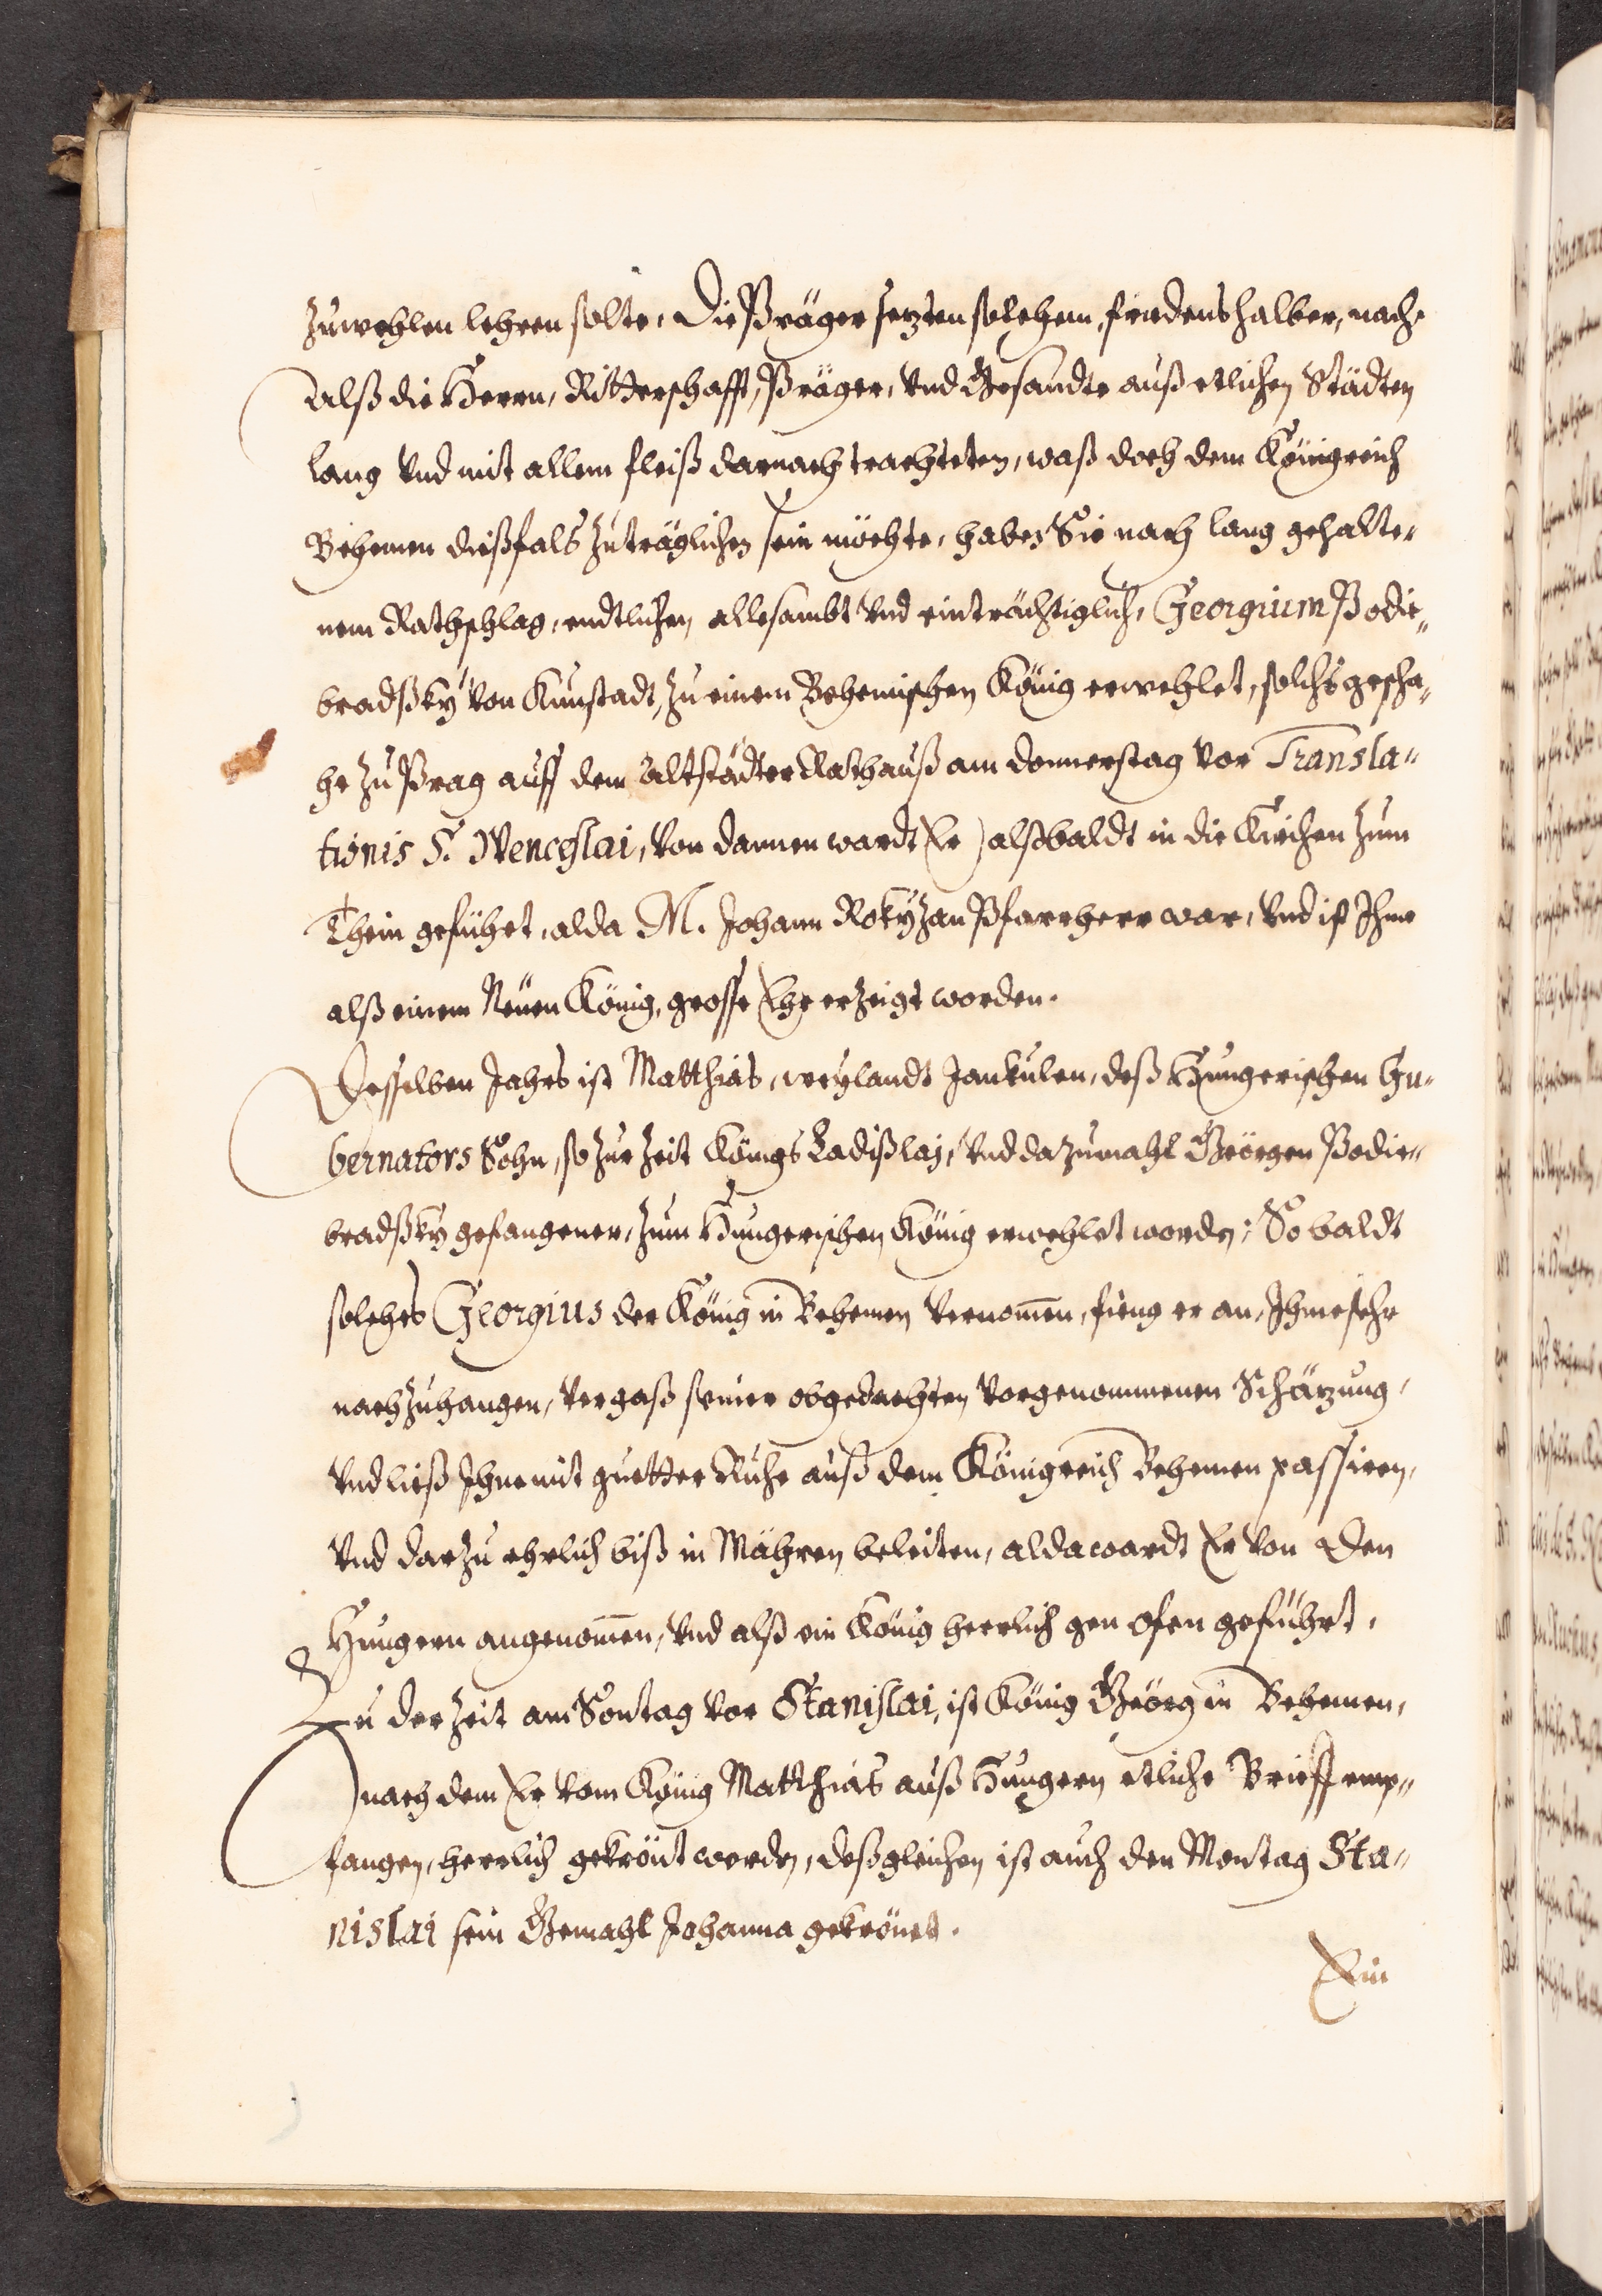 zuwehlen lehren solte, Die Präger setzten solchem, friedens halber, nach,
Alß die Herrn, Ritterschafft, Präger, vnd Gesandte auß etlichen Städten
lang vnd mit allem fleiß darnach trachteten, waß doch dem Königreich
Behemen dießfals zuträglichen sein möchte, haben Sie nach lang gehalte„
nem Rathschlag, endtlichen allesambt vnd einträchtiglich, Georgium Podie„
bradßky von Kunstadt, zu einem Behemischen König erwehlet, solchs gescha„
he zu Prag auff dem Altstädter Rathauß am donnerstag vor Transla„
tionis S. Wenceslai, von dannen wardt Er alßbaldt in die Kirchen zum
Thein geführt, alda M. Johann Rokyzan Pfarrherr war, vnd ist Ihme
alß einem Neuen König, grosse Ehr erzeigt worden.
Desselben Jahrs ist Matthias, weylandt Jankulen, deß Hungerischen Gu„
bernators Sohn, so zur Zeit Königs Ladißlaj, vnd dazumahl Geörgen Podie„
bradßky gefangener, zum Hungerischen König erwehlet worden; So baldt
solches Georgius der König in Behemen vernom̄en, fieng er an, Ihme sehr
nachzuhangen, vergaß seiner obgedachten vorgenommenen Schätzung,
vnd ließ Ihne mit guetter Ruhe auß dem Königreich Behemen passiren,
vnd darzu ehrlich biß in Mähren beleiten, alda wardt Er von den
Hungern angenom̄en, vnd alß ein König herrlich gen Ofen geführt.
Zu der Zeit am Sontag vor Stanislai, ist König Geörg in Behemen,
nach dem Er vom König Matthias auß Hungern etliche Brieff emp„
fangen, herrlich gekrönt worden, deßgleichen ist auch den Montag Sta„
nislai sein Gemahl Johanna gekrönet.
Ein